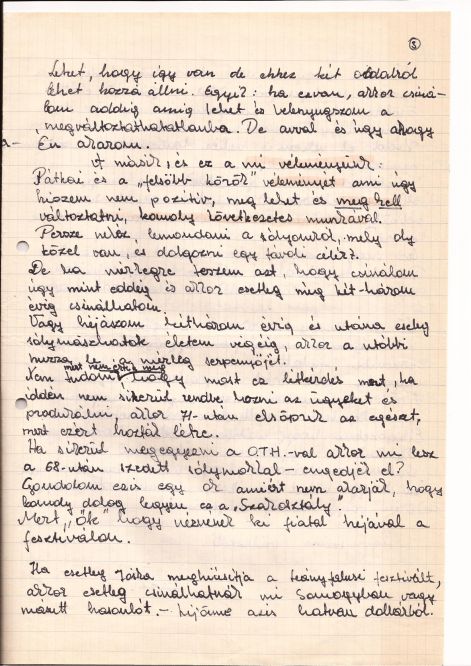 5
Lehet, hogy így van de ehhez két oldalról
lehet hozzá állni. Egyik: ha ez van, akkor csiná-
lom addig amig lehet és belenyugszom a
megváltoztathatatlanba. De avval és úgy ahogy
Én akarom.
A másik, és ez a mi véleményünk:
Pátkai és a „felsőbb körök" véleményét ami úgy
hiszem nem pozitív, meg lehet és meg kell
változtatni, komoly következetes munkával.
Persze nehéz lemondani a sólyomról, mely oly
közel van, és dolgozni egy távoli célért.
De ha mérlegre teszem azt, hogy csinálom
úgy mint eddig és akkor esetleg még két-három
évig csinálhatom.
Vagy héjászom két három évig és utána esetleg
sólymászhatok életem végéig, akkor az utóbbi
húzza le a mérleg serpenyőjét.
Nem tudom hogy most ez létkérdés mert, ha
idén nem sikerül rendbe hozni az ügyeket és
produkálni, akkor 71-után elsöprik az egészet,
mert ezért hozták létre.
Ha sikerül megegyezni a O.T.H.-val akkor mi lesz
a 68-után szedett sólymokkal – engedjék el?
Gondolom ez is egy ok amiért nem akarják, hogy
komoly dolog legyen ez a „Szakosztály".
Mert „Ők" hogy néznének ki fiatal héjával a
fesztiválon.
Ha esetleg Jóska meghiúsítja a leányfalusi fesztivált,
akkor esetleg csinálhatnánk mi Somogyban vagy
másutt hasonlót. – héjánként is hatvan dollárból.